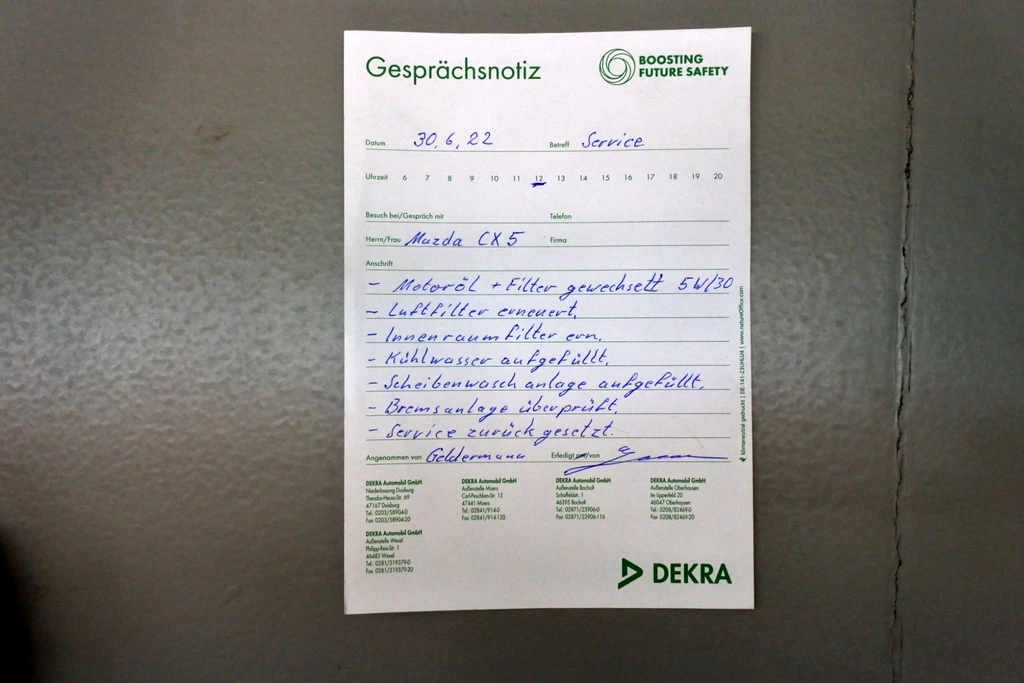 Gesprächsnotiz
BOOSTING
FUTURE SAFETY
Datum 30.6.22 Betreff Service
Uhrzeit 6 7 8 9 10 11 12 13 14 15 16 17 18 19 20
Besuch bei/Gespräch mit Telefon
Herrn/Frau Mazda CX5 Firma
Anschrift
- Motoröl + Filter gewechselt 5W/30
- Luftfilter erneuert.
- Innenraumfilter ern.
- Kühlwasser aufgefüllt.
- Scheibenwaschanlage aufgefüllt.
- Bremsanlage überprüft.
- Service zurück gesetzt.
Angenommen von Geldermann Erledigt am/von
klimaneutral gedruckt | DE-141-23UHLU4 | www.natureOffice.com
DEKRA Automobil GmbH
Niederlassung Duisburg
Theodor-Heuss-Str. 69
47167 Duisburg
Tel.: 0203/58904-0
Fax 0203/58904-20
DEKRA Automobil GmbH
Außenstelle Moers
Carl-Peschken-Str. 15
47441 Moers
Tel.: 02841/914-0
Fax 02841/914-120
DEKRA Automobil GmbH
Außenstelle Bocholt
Schaffeldstr. 1
46395 Bocholt
Tel.: 02871/23906-0
Fax 02871/23906-116
DEKRA Automobil GmbH
Außenstelle Oberhausen
Im Lipperfeld 20
46047 Oberhausen
Tel.: 0208/82469-0
Fax 0208/82469-20
DEKRA Automobil GmbH
Außenstelle Wesel
Philipp-Reis-Str. 1
46485 Wesel
Tel.: 0281/319379-0
Fax 0281/319379-20
DEKRA